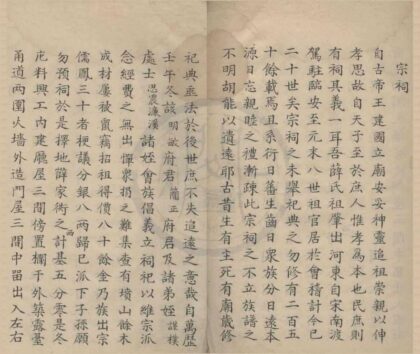 宗祠
自古帝王建國立廟妥安神靈追祖崇親以伸
孝思故自天子至於庶人惟孝為本也民庶則
有祠其義一耳吾薛氏祖肇出河東自宋南渡
駕駐臨安至元末八世祖官居於會稽計今已
二十世矣宗祠之未舉祀典之勿修有二百五
十餘載焉且系行日蕃生齒日衆族分日遠本
源日忘親睦之禮漸疎此宗祠之不立族譜之
不明胡能以遺遠耶古昔生有主死有廟歲修
祀典垂法於後世庶不失追遠之意哉自萬歷
壬午冬該明敏府君蘭正府君及諸弟姪謹樸
處士思震濂溪諸姪會族倡義立祠祀以維宗派
念經費之無出憚衆扔之難集查有墳山餘木
成材廉被竄竊招祖得價八十餘金乃族出宗
儒鳳三十者梗議分銀八兩歸巳派下子孫願
勿預祠於是擇地薛家衖之西計基五分零是冬
庀料興工內建廳屋三間傍置欄干外築露臺
甬道兩圍火墻外造門屋三間中留出入左右